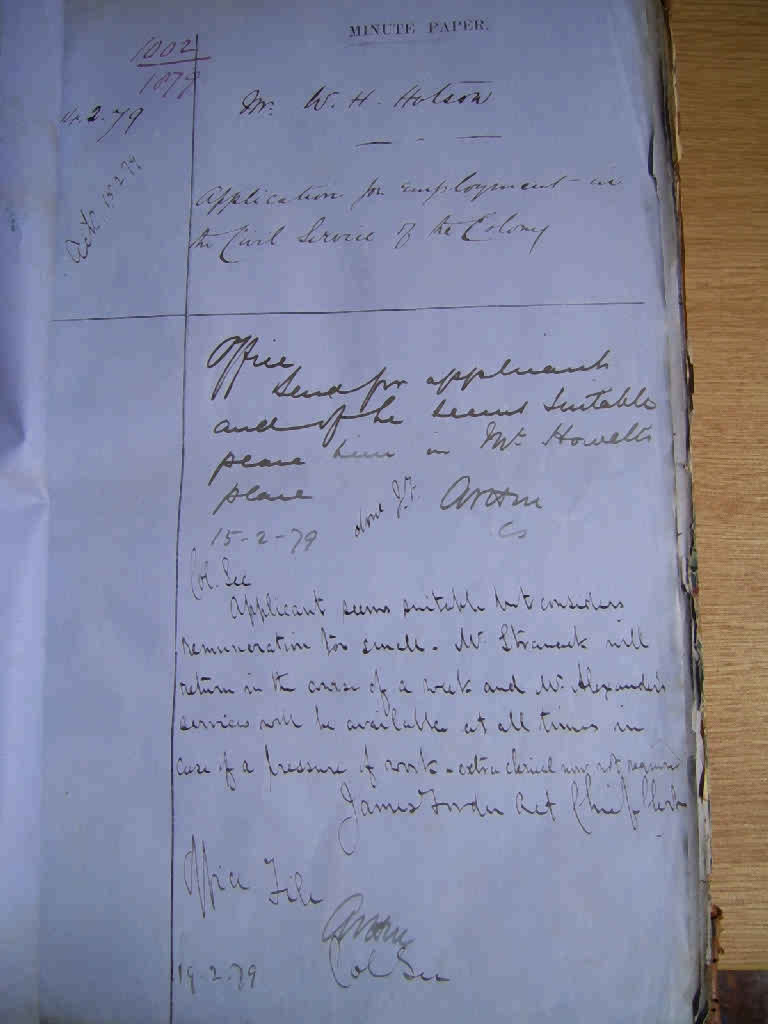 MINUTE PAPER.
1002
1879
2.79
Mr. W. H. Hotson
Application for employment in
the Civil Service of the Colony
15.2.79
Office
Send for applicant
and if he seems suitable
place him in Mr. Howell's
place
15-2-79
CS
Col. Sec
Applicant seems suitable but considers
remuneration too small. Mr. Stranack will
return in the course of a week and Mr. Alexander's
services will be available at all times in
case of a pressure of work - extra clerical now not required
James Act Chief Clerk
Office File
Col Sec
19.2.79